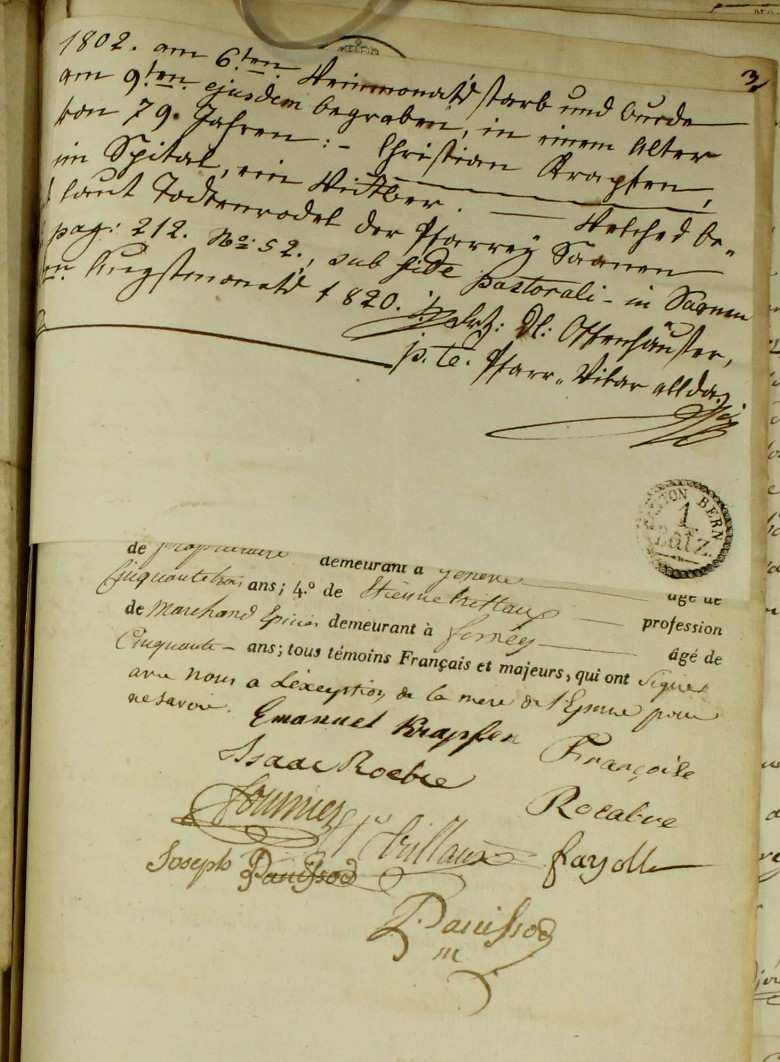 3
1802. am 6.ten Weinmonats starb und wurde
am 9.ten ejusdem begraben, in einem Alter
von 79. Jahren :- Christian Krapfen,
im Spital, ein Wittber. Welches be-
laut Todtenrodel der Pfarrey Saanen
pag: 212. No: 52., sub fide pastorali - in Saanen
Augstmonats 1820.
p. te. Pfarr-Vikar allda.
CANTON BERN
1
BATZ.
de propriétaire demeurant à Genève âgé de
Cinquante trois ans; 4.º de Etienne Trillaux profession
de Marchand Epicier demeurant à Fernéy âgé de
Cinquante - ans; tous témoins Français et majeurs, qui ont Signés
avec nous a L'éxeption de la mere de l'Epouse pour
ne savoir.
Emanuel Krapfen Françoise
Isaac Rocbre Rocabre
Fournier
Trillaux fayolle
Joseph Panissod
Panissod
m